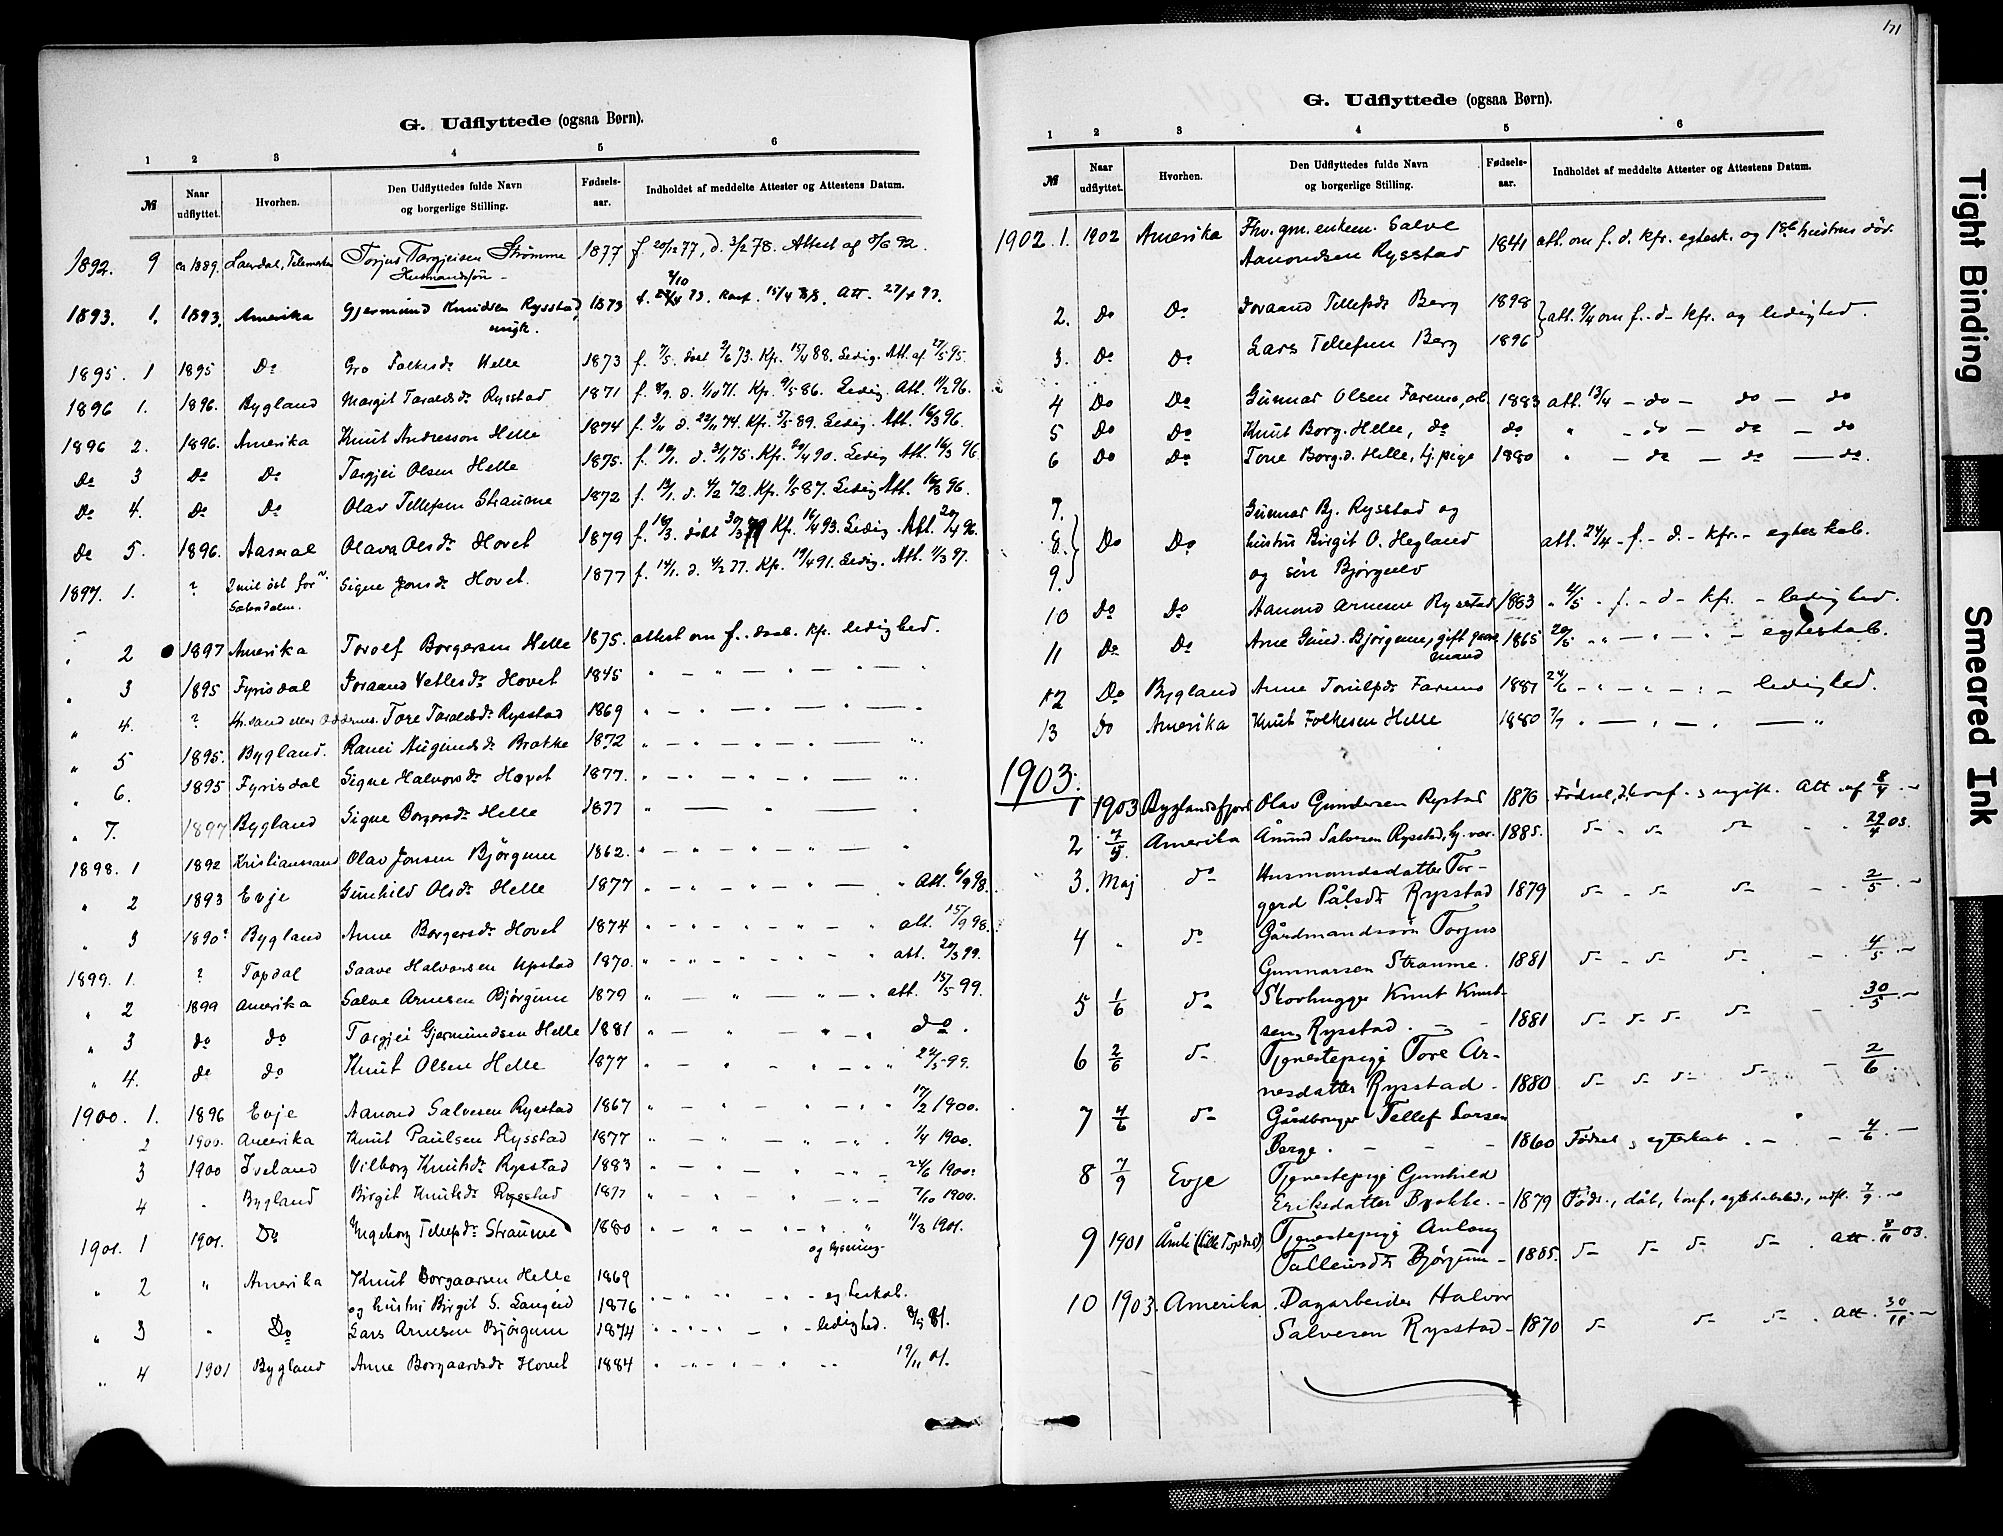 171
G. Udflyttede (ogsaa Børn).
1 2 3 4 5 6
№ Naar udflyttet. Hvorhen. Den Udflyttedes fulde Navn og borgerlige Stilling. Fødsels-aar. Indholdet af meddelte Attester og Attestens Datum.
1892. 9 ca 1889. Laurdal, Telemarken Torjus Targjeisen Strømme 1877 f. 20/12 77, d. 3/2 78. Attest af 8/6 92.
Husmandssøn
1893. 1. 1893. Amerika Gjermund Knudsen Rysstad, 1873 Konf. 15/4 88. Att. 27/4 93.
ungk.
1895. 1 1895 Do Gro Folkesdr Helle 1873 f. 7/5. døbt 2/6 73. Kfr. 15/4 88. Ledig. Att. af 27/5 95.
1896 1. 1896. Bygland Margit Taraldsdr Rysstad 1871 f. 8/9. d. 1/10 71. Kfr. 9/5 86. Ledig. Att. 11/2 96.
1896 2. 1896. Amerika Knut Andresson Helle 1874 f. 3/11 d. 22/11 74. Kfr. 5/5 89. Ledig. Att. 16/3 96.
Do 3 Do Do Targjei Olsen Helle 1875. Ledig Att. 16/3 96
Do 4. Do Do Olav Tellefsen Straume 1872 f. 13/1. d. 4/2 72. Kfr. 1/5 87. Ledig Att. 16/3 96.
Do 5. 1896. Aaseral Olava Olsdr Hovet 1879 f. 18/3. døbt 30/3 79 Kf. 16/4 93. Ledig. Att. 20/4 96.
1897. 1. ? 2 mil öst for Sætersdalen. Signe Jonsdr Hovet. 1877 f. 14/1. d. 4/2 77. Kfr. 19/4 91. Ledig. Att. 1/3 97.
" 2 1897 Amerika Torolf Borgersen Helle 1875. attest om f. daab. kfr. ledighed.
" 3 1895 Fyrisdal Joraand Vetlesdr Hovet 1845 " - " - " - " - "
" 4. ? Kr.sand eller Oddernes. Tore Taraldsdr Rysstad 1869 " - " - " - "
" 5 1895. Bygland. Ranei Augundsdr Brotke 1872 " - " - " - "
" 6. 1895 Fyrisdal Signe Halvorsdr Hovet 1877. " - " - " - "
" 7. 1897 Bygland Signe Borgersdr Helle 1877 " - " - "
1898. 1 1892 Kristianssand Olav Jonsen Bjørgum 1862. " - " - " - "
" 2 1893 Evje Gunhild Olsdr Helle 1877 " - " - " - " Att. 6/9 98.
" 3 1890? Bygland Anne Borgersdr Hovet 1874 " - " - " - att. 15/9 98.
1899. 1. ? Topdal Saave Halvorsen Upstad 1870. " - " - " - " att. 20/3 99.
" 2 1899 Amerika Salve Arnesen Bjørgum 1879 " - " - " - " att. 15/5 99.
" 3 do do Targjei Gjermundsen Helle 1881 " - " - " - do.
" 4. do do Knut Olsen Helle 1877 " - " - " - " 24/5 99.
1900. 1. 1896 Evje Aanond Salvesen Rysstad 1867 " - " - " - " 17/2 1900.
2 1900. Amerika Knut Paulsen Rysstad 1877 " - " - " - " 1/4 1900.
3 1900 Iveland Vilborg Knutsdr Rysstad 1883 " - " - " - " 24/6 1900.
4 " Bygland Birgit Knutsdr Rysstad 1877 " - " - " - " 7/10 1900.
1901. 1 1901. Do Ingeborg Tellefsdr Straume 1880 " - " - " - " 11/3 1901.
og lysning.
" 2 " Amerika Knut Borgaarsen Helle 1869
og hustru Birgit S. Langeid 1876 " - " - " - egteskab.
" 3 " Do Lars Arnesen Bjørgum 1874 " - " - " - ledighed. 8/5 01.
" 4 1901 Bygland Anne Borgaardsdr Hovet 1884 " - " - " - " 19/11 01.
G. Udflyttede (ogsaa Børn).
1 2 3 4 5 6
№ Naar udflyttet. Hvorhen. Den Udflyttedes fulde Navn og borgerlige Stilling. Fødsels-aar. Indholdet af meddelte Attester og Attestens Datum.
1902. 1. 1902 Amerika Fhv. gm. enkem. Salve
Aanondsen Rysstad 1841 att. om f. d. kfr. egtesk. og 1ste hustrus død.
2. Do Do Joraand Tellefsdr Berg 1898 att. 9/4 om f. - d - kfr. og ledighed.
3. Do Do Lars Tellefsen Berg 1896
4 Do Do Gunnar Olsen Faremo, arb. 1883 att. 13/4 - do - do - do
5 Do Do Knut Borg. Helle, do do " - do - do - do
6 Do Do Tone Borg.d. Helle, tj.pige 1880 " - do - do - do.
7. Gunnar Bj. Rysstad og
8. Do Do hustru Birgit O. Hegland att. 24/4 - f. - d. - kfr. - egteskab.
9. og sön Bjørgulv
10 Do Do Aanond Arnesen Rysstad 1863 " 4/5 - f. - d - kfr. - ledighed.
11 Do Do Arne Gund. Bjørgum, gift gaardmand 1865 20/5 " - " - " - egteskab.
12 Do Bygland Anne Torulfsdr Faremo 1887 24/6 - " - " - " - ledighed.
13 Do Amerika Knut Folkesen Helle 1880 7/7 " - " - " - "
1903.
1 1903 Byglandsfjord Olav Gundersen Rystad 1876 Fødsel, d, konf. & ugift. Att. af 8/4. -
2 7/5. Amerika Ånund Salvesen Rysstad, 1885. do - do do - 29/4 03.
3. Maj do Husmandsdatter Tor-
gerd Pålsdtr Rysstad 1879 do - do do - 2/5. -
4 " do Gårdmandssön Torjus
Gunnarsen Straume. 1881 do - do - do - 4/5. -
5 1/6 do Skovhugger Knut Knut-
sen Rysstad. - - 1881 do do do do - 30/5. -
6 2/6 do Tjenestepige Tore Ar-
nesdatter Rysstad - 1880 do do do do - 2/6.
7 4/6 do Gårdbruger Tellef Larsen
Berge. - - - 1860 Fødsel & egteskab. - - 4/6. -
8 7/9 Evje Tjenestepige Gunhild
Eriksdatter Brokke. - 1879 Føds., dåb, konf., udfl. 7/9. -
9 1901 Åmli (Lille Topdal) Tjenestepige Anlaug
Talleivsdtr Bjørgum - 1885. do do do do. Att. 8/11 03.
10 1903. Amerika. Dagarbeider Halvor
Salvesen Rysstad - 1870 do do do. Att. 30/11. -
Tight Binding
Smeared Ink